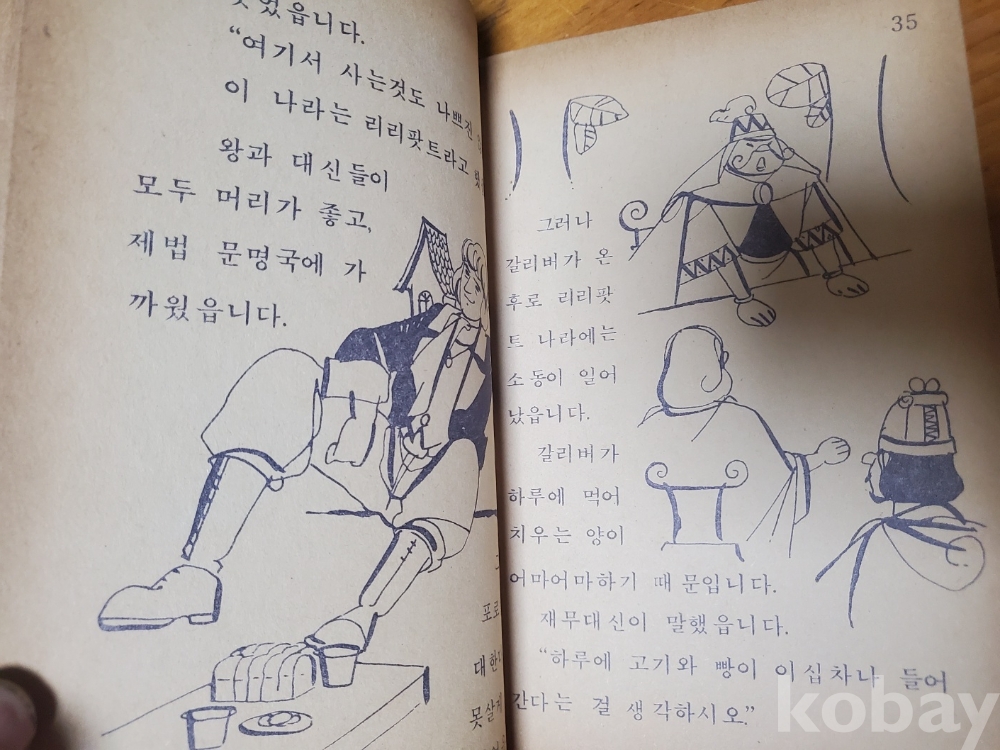 었읍니다.
“여기서 사는것도 나쁘진
이 나라는 리리팟트라고
왕과 대신들이
모두 머리가 좋고,
제법 문명국에 가
까웠읍니다.
포로
대한
못살게
35
그러나
갈리버가 온
후로 리리팟
트 나라에는
소동이 일어
났읍니다.
갈리버가
하루에 먹어
치우는 양이
어마어마하기 때문입니다.
재무대신이 말했읍니다.
“하루에 고기와 빵이 이십차나 들어
간다는 걸 생각하시오.”
kobay